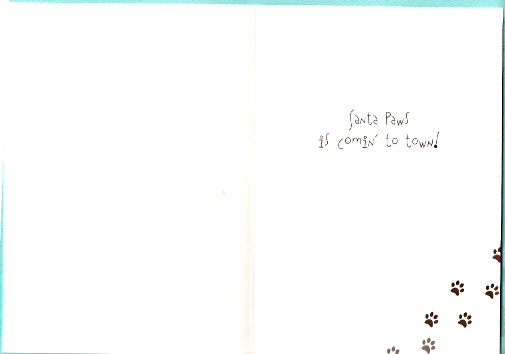 Santa Paws
is comin' to town!